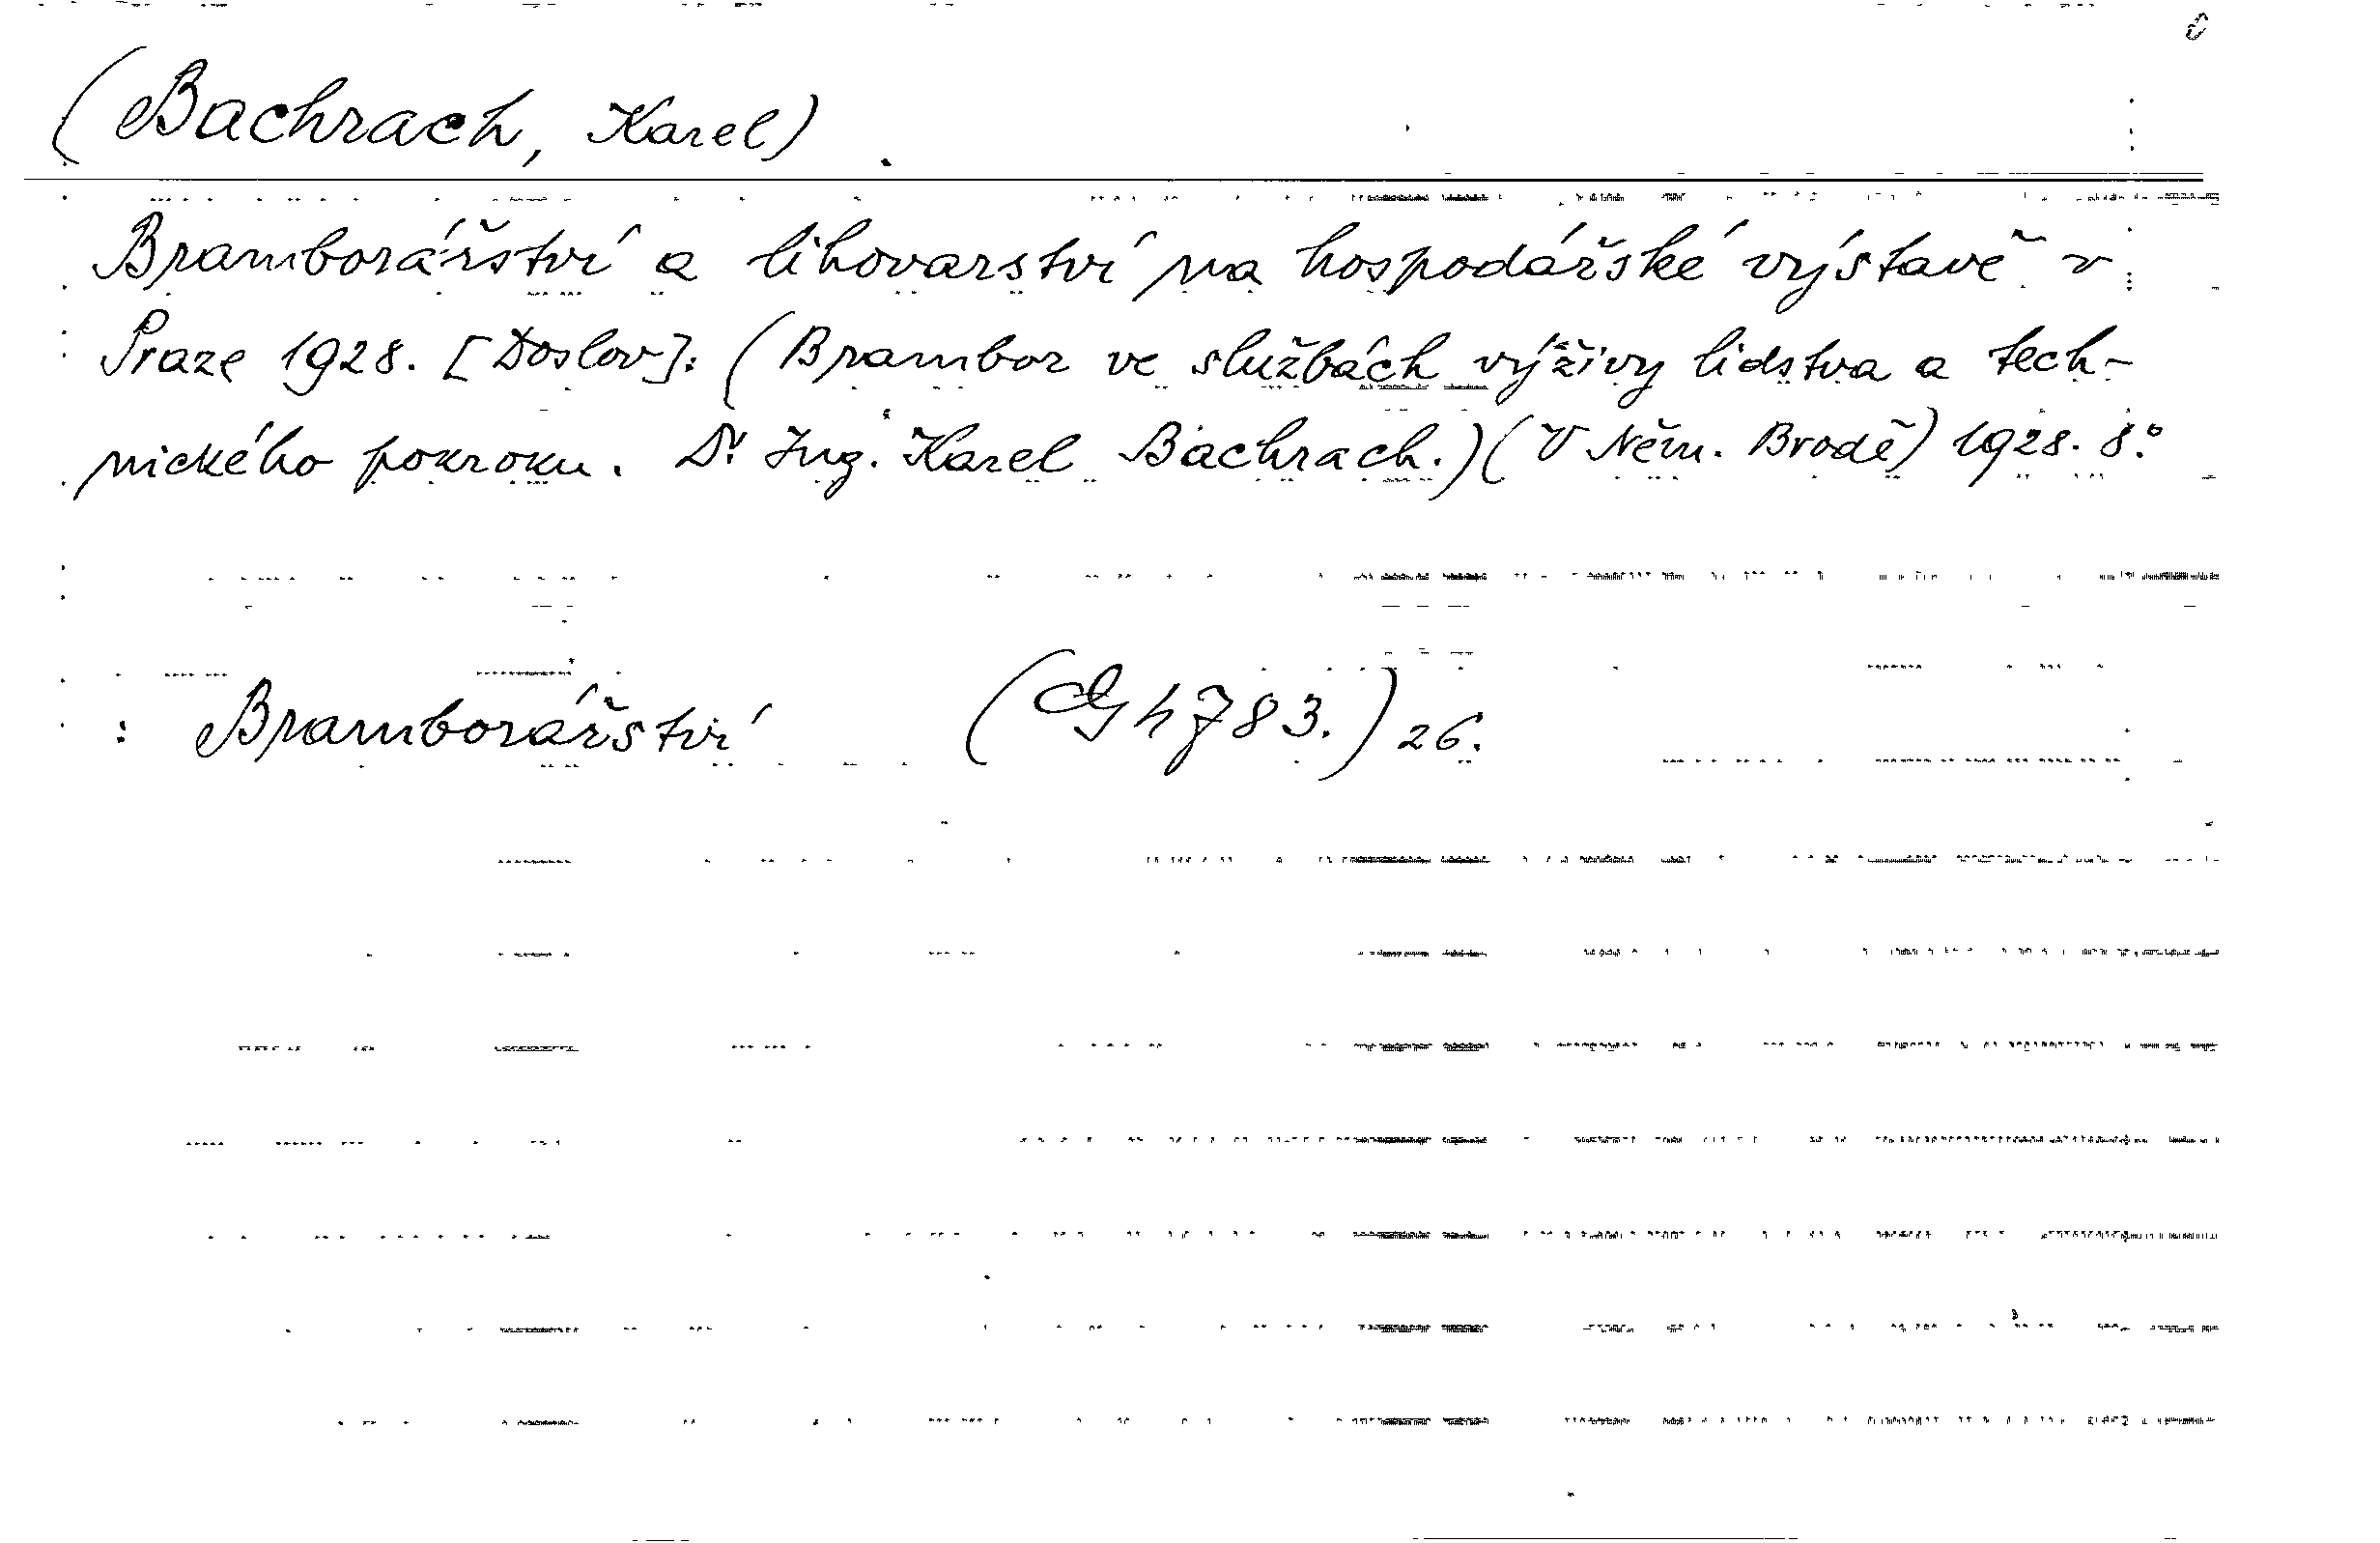 (Bachrach, Karel)
Bramborářství a lihovarství na hospodářské výstavě v
Praze 1928. [Doslov]: (Brambor ve službách výživy lidstva a tech-
nického pokroku. Dr. Ing. Karel Bachrach.) (V Něm. Brodě) 1928. 8°.
: Bramborářství (G h 783.) 26.